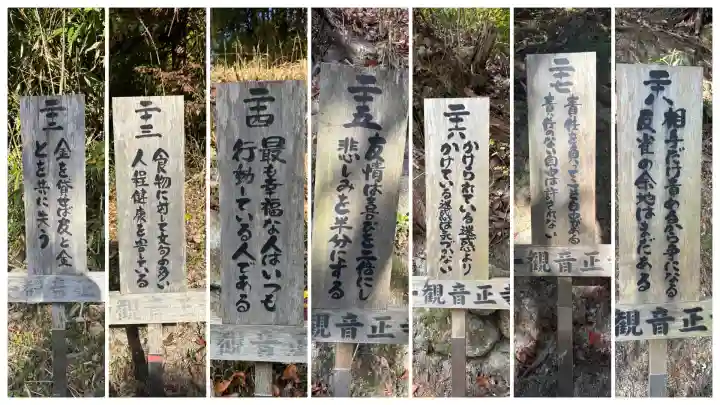 二十二
金を脅せば友と金
とを共に失う
二十三
食物に対して文句の多い
人程健康を害している
二十四
最も幸福な人はいつも
行動している人である
観音
二十五
友情は喜びを二倍にし
悲しみを半分にする
観音正寺
二十六
かけられている迷惑より
かけている迷惑は気づかない
観音正寺
二十七
責任を負って立つ自由である
責任のない自由は許されない
観音正
二十八
相手だけ責めるから争になる
反省の余地はまだある
観音正